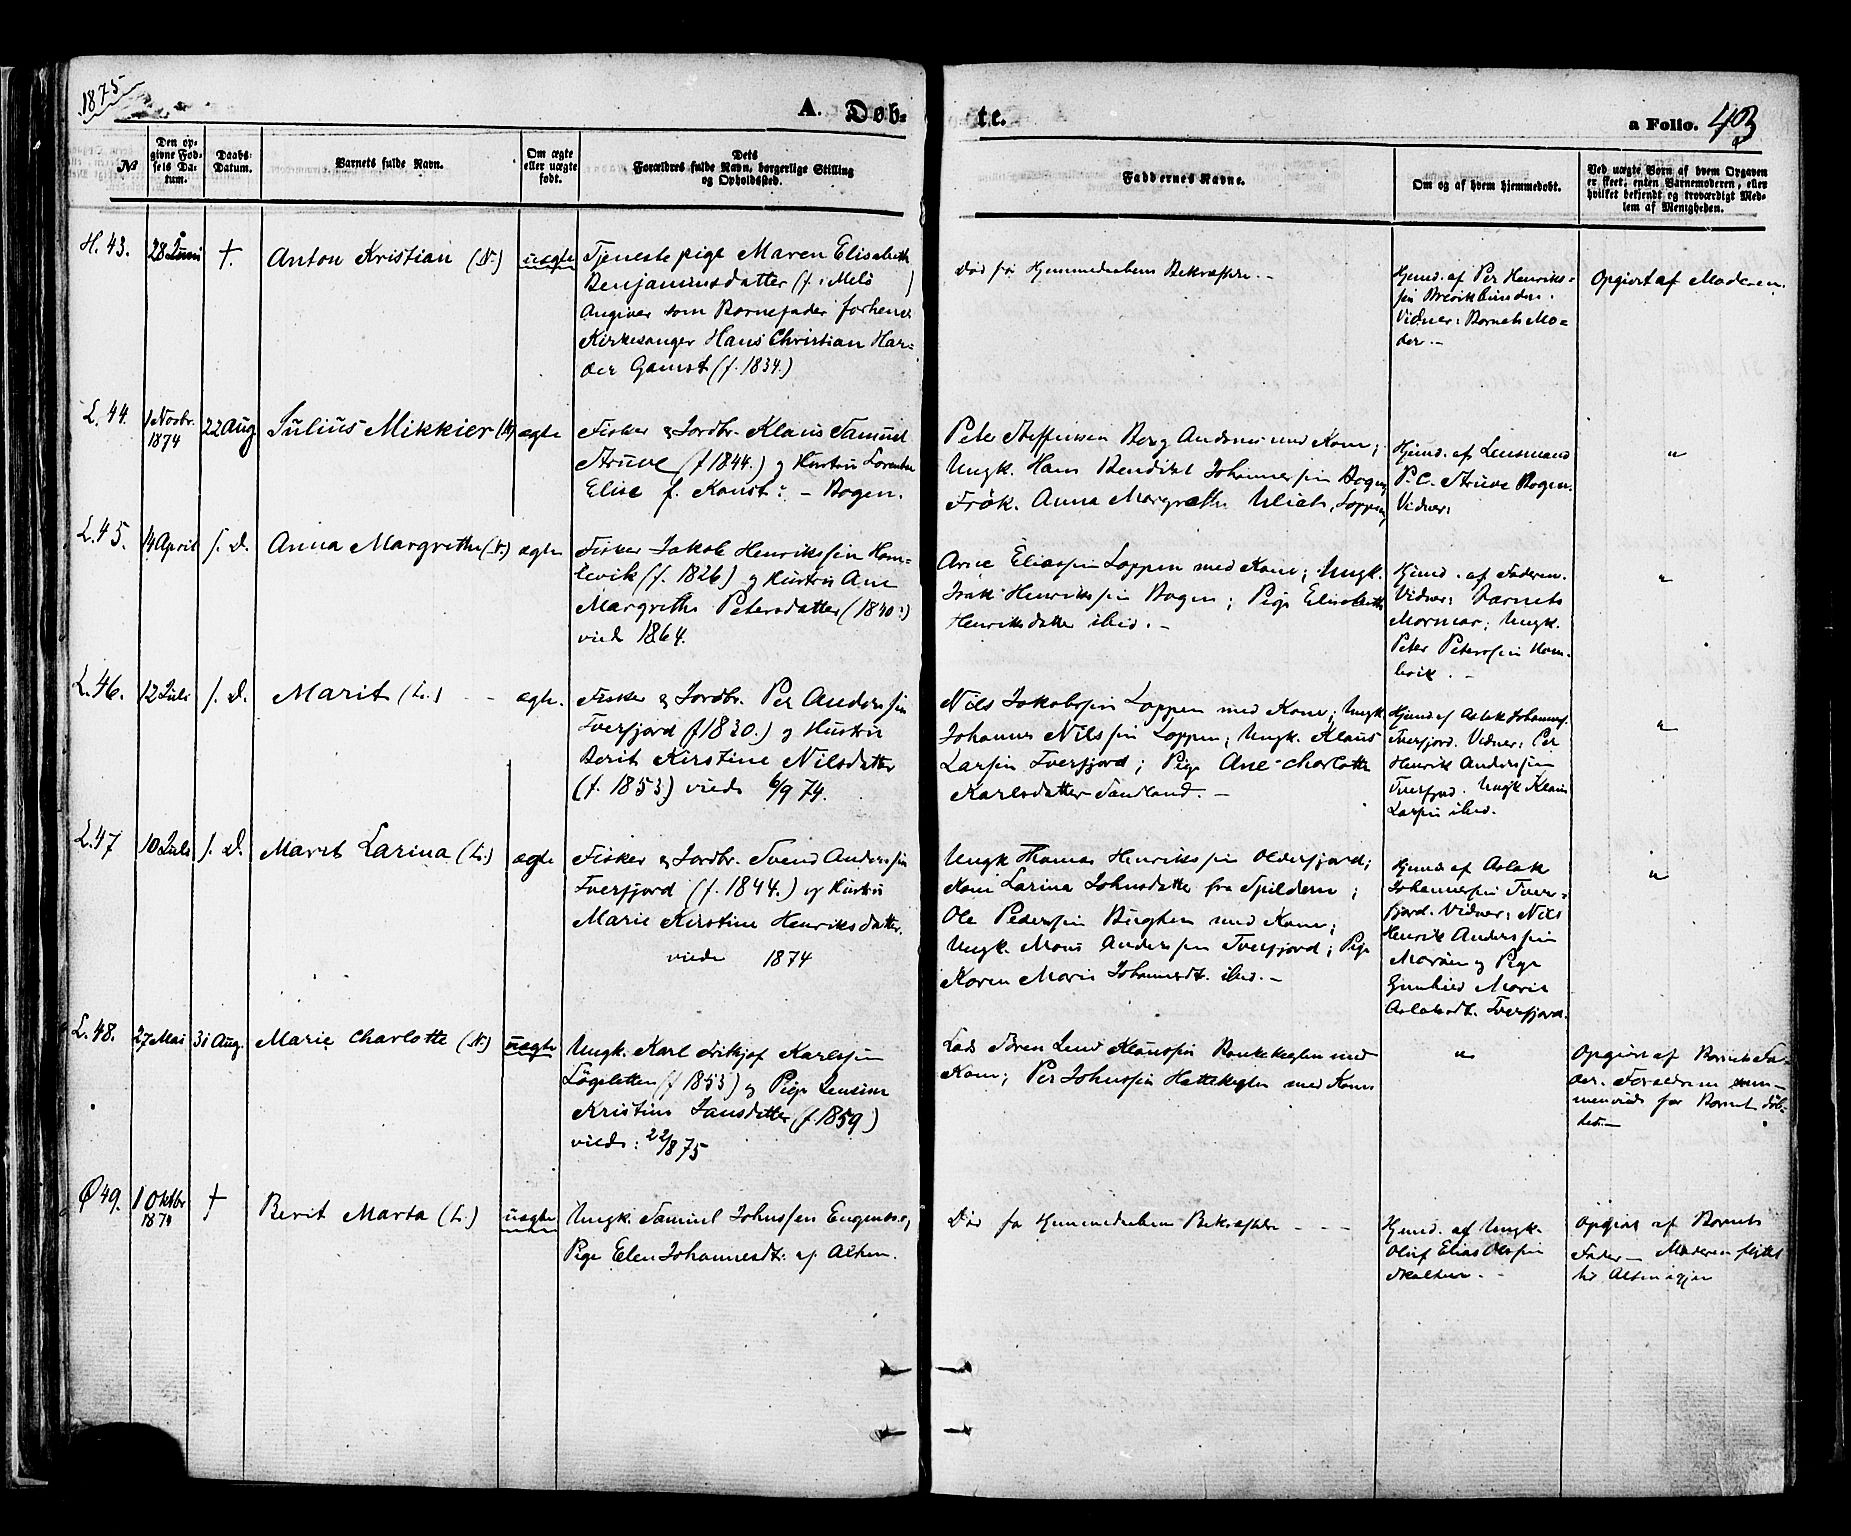 1875
A. Døb-
te.
a Folio. 43
No
Den op-
givne Fød-
sels Da-
tum.
Daabs-
Datum.
Barnets fulde Navn.
Om ægte
eller uægte
født.
Dets
Forældres fulde Navn, borgerlige Stilling
og Opholdssted.
Faddernes Navne.
Om og af hvem hjemmedøbt.
Ved uægte Børn af hvem Opgaven
er skeet, enten Barnemoderen, eller
hvilket bekjendt og troværdigt Med-
lem af Menigheden.
H. 43.
28 Juni
†.
Anton Kristian (N.)
uægte
Tjenestepige Maren Elisabeth
Benjaminsdatter (f. i Melö )
Angiver som Barnefader forhenv.
Kirkesanger Hans Christian Har-
der Gamst (f. 1834.)
Död før Hjemmedaabens Bekræftelse. -
Hjmd. af Per Henriks-
sen
Vidner: Barnets Mo-
der. -
Opgivet af Moderen.
L. 44.
1 Novbr.
1874
22 Aug
Julius Mikkier (N)
ægte
Fisker & Jordbr. Klaus Samuel
Struve (f 1844.) og Hustru
Elise f. Konst: - Bogen.
Peter Steffensen Berg Andsnes med Kone;
Ungk. Hans Bendikt Johannessen Bogen;
Frök. Anna Margrethe Ulich, Loppen
Hjmd. af Lensmand
P. C. Struve Bogen.
Vidner:
"
L. 45.
14 April
s. D.
Anna Margrethe (N.)
ægte
Fisker Jakob Henrikssen Ham-
levik (f. 1826) og Hustru Ane
Margrethe Petersdatter (1840:)
vied 1864.
Arne Eliassen Loppen med Kone; Ungk.
Isak Henrikssen Bogen; Pige Elisabeth
Henriksdatter ibid. -
Hjmd. af Faderen.
Vidner: Barnets
Mormor; Ungk.
Peter Peterssen Ham-
levik. -
"
L. 46.
12 Juli
s. D.
Marit (L.) - -
ægte.
Fisker & Jordbr. Per Anderssen
Tverfjord (f 1830.) og Hustru
Berit Kirstine Nilsdatter
(f. 1853.) viede 6/9 74.
Nils Jakobssen Loppen med Kone; Ungk.
Johannes Nilssen Loppen; Ungk. Klaus
Larsen Tverfjord; Pige Ane Charlotte
Karlsdatter Sandland. -
Hjmd af Aslak Johanness.
Tverfjord. Vidner: Per
Henrik Anderssen
Tverfjord. Ungk Klaus
Larsen ibid.
"
L. 47
10 Juli
s. D.
Marit Larina (L.)
ægte
Fisker & Jordbr. Svend Anderssen
Tverfjord (f. 1844.) og Hustru
Marie Kirstine Henriksdatter.
viede 1874
Ungk Thomas Henrikssen Oldersfjord;
Kone Larina Johnsdatter fra Spildern;
Ole Pederssen med Kone;
Ungk. Mons Anderssen Tverfjord; Pige
Karen Marie Johannesdt. ibid. -
Hjmd af Aslak
Johannessen Tver-
fjord. Vidner: Nils
Henrik Anderssen
og Pige
Gunhild Marie
Aslaksdt. Tverfjord.
"
L. 48.
27 Mai
31 Aug.
Marie Charlotte (N.)
uægte
Ungk. Karl Fritjof Karlssen
Lögsletten (f 1853) og Pige
Kristine Jansdatter (f. 1859)
viede: 22/8 75
Lars Sören Lund Klaussen med
Kone; Per Johnssen med Kone
"
Opgivet af Barnets Fa-
der. Forældrene sam-
menviede før Barnet döb-
tes. -
Ø 49.
1 Oktbr
1874
†
Berit Marta (L.)
uægte
Ungk. Samuel Johnssen
Pige Elen Johannesdt: af Alten.
Död før Hjemmedaabens Bekræftelse - - -
Hjmd. af Ungk.
Oluf Elias Olssen
Opgivet af Barnets
Fader - Moderen flyttet
til Alten igjen